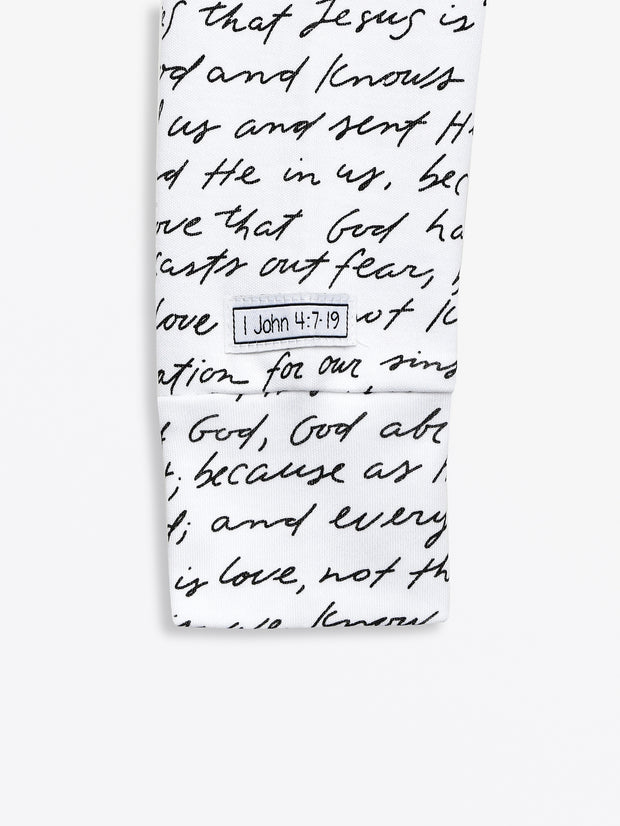 that Jesus is
and Knows
us and sent H
He in us, bec
that God ha
casts out fear,
love 1 John 4:7-19 not K
ation for our sins
God, God abi
; because as
; and every
is love, not th
we know